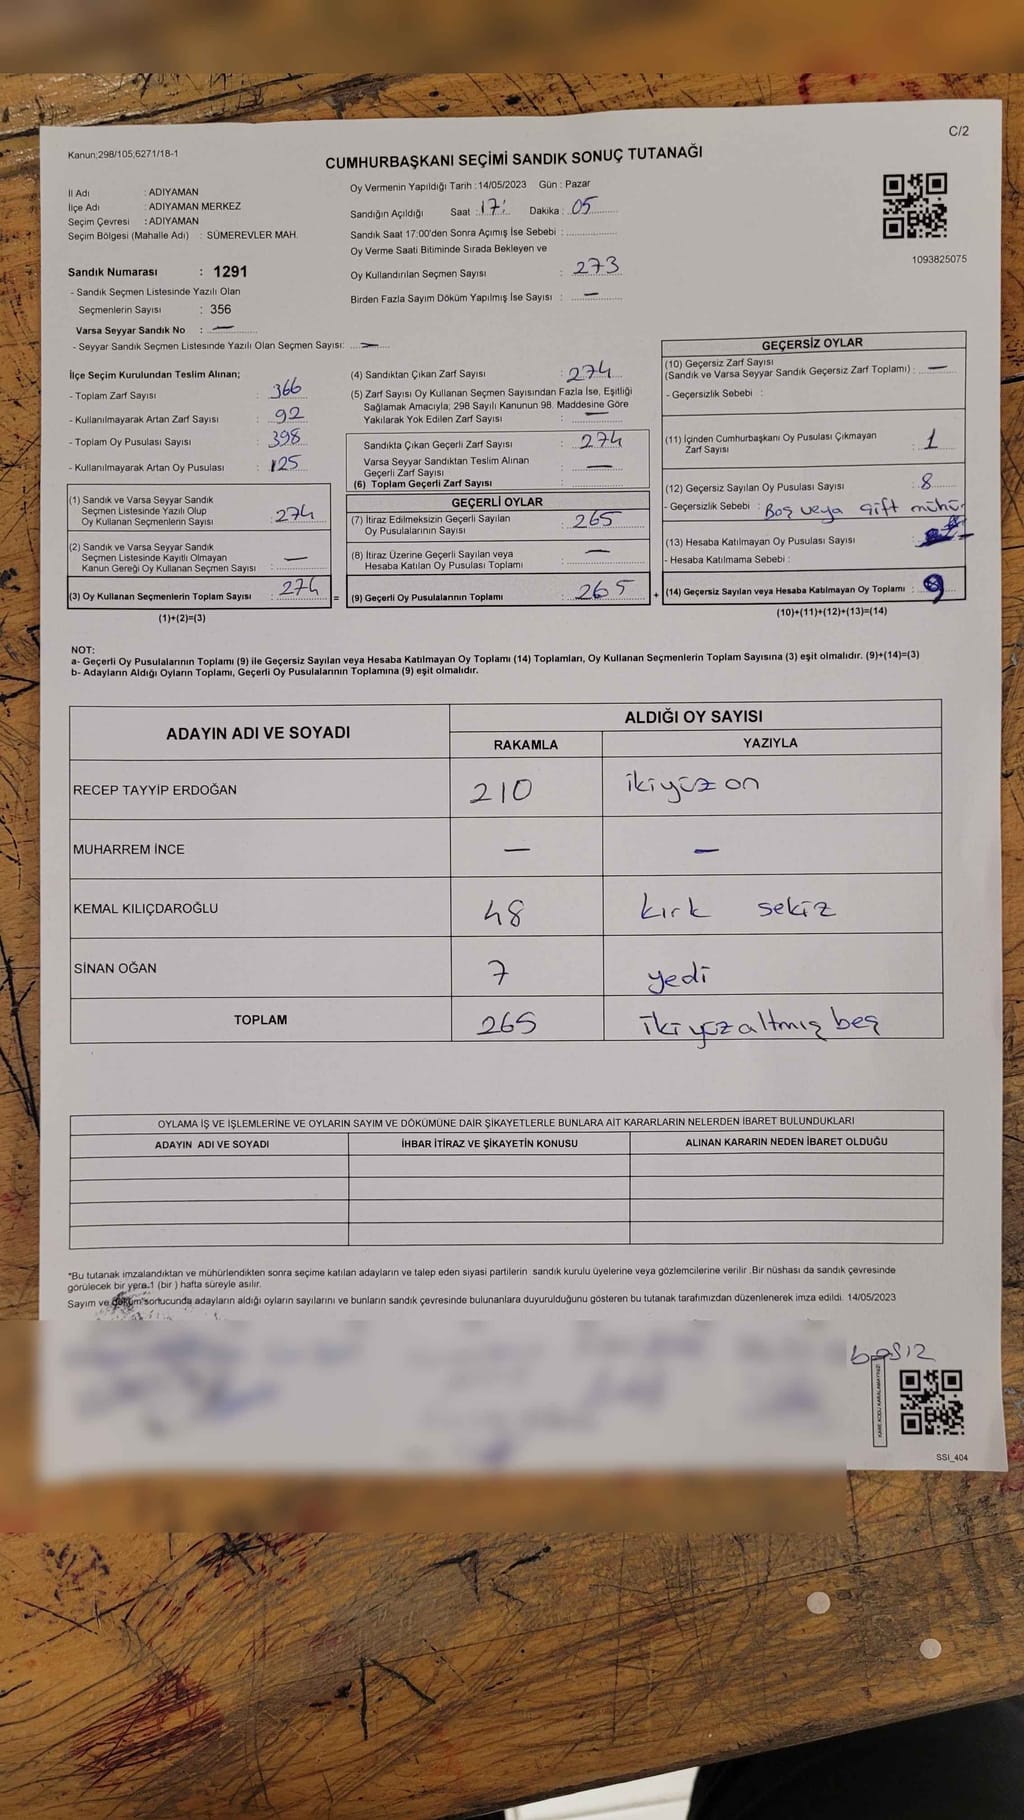 C/2
Kanun;298/105;6271/18-1
CUMHURBAŞKANI SEÇİMİ SANDIK SONUÇ TUTANAĞI
İl Adı : ADIYAMAN
İlçe Adı : ADIYAMAN MERKEZ
Seçim Çevresi : ADIYAMAN
Seçim Bölgesi (Mahalle Adı) : SÜMEREVLER MAH.
Oy Vermenin Yapıldığı Tarih : 14/05/2023 Gün : Pazar
Sandığın Açıldığı Saat : 17: Dakika : 05
Sandık Saat 17:00'den Sonra Açımış İse Sebebi :
Oy Verme Saati Bitiminde Sırada Bekleyen ve
Oy Kullandırılan Seçmen Sayısı : 273
Birden Fazla Sayım Döküm Yapılmış İse Sayısı : —
1093825075
Sandık Numarası : 1291
- Sandık Seçmen Listesinde Yazılı Olan
Seçmenlerin Sayısı : 356
Varsa Seyyar Sandık No : —
- Seyyar Sandık Seçmen Listesinde Yazılı Olan Seçmen Sayısı: —
İlçe Seçim Kurulundan Teslim Alınan;
- Toplam Zarf Sayısı : 366
- Kullanılmayarak Artan Zarf Sayısı : 92
- Toplam Oy Pusulası Sayısı : 398
- Kullanılmayarak Artan Oy Pusulası : 125
(1) Sandık ve Varsa Seyyar Sandık
Seçmen Listesinde Yazılı Olup
Oy Kullanan Seçmenlerin Sayısı : 274
(2) Sandık ve Varsa Seyyar Sandık
Seçmen Listesinde Kayıtlı Olmayan
Kanun Gereği Oy Kullanan Seçmen Sayısı : —
(3) Oy Kullanan Seçmenlerin Toplam Sayısı : 274 =
(1)+(2)=(3)
(4) Sandıktan Çıkan Zarf Sayısı : 274
(5) Zarf Sayısı Oy Kullanan Seçmen Sayısından Fazla İse, Eşitliği
Sağlamak Amacıyla; 298 Sayılı Kanunun 98. Maddesine Göre
Yakılarak Yok Edilen Zarf Sayısı : —
Sandıkta Çıkan Geçerli Zarf Sayısı : 274
Varsa Seyyar Sandıktan Teslim Alınan
Geçerli Zarf Sayısı : —
(6) Toplam Geçerli Zarf Sayısı :
GEÇERLİ OYLAR
(7) İtiraz Edilmeksizin Geçerli Sayılan
Oy Pusulalarının Sayısı : 265
(8) İtiraz Üzerine Geçerli Sayılan veya
Hesaba Katılan Oy Pusulası Toplamı : —
(9) Geçerli Oy Pusulalarının Toplamı : 265 +
GEÇERSİZ OYLAR
(10) Geçersiz Zarf Sayısı
(Sandık ve Varsa Seyyar Sandık Geçersiz Zarf Toplamı) : —
- Geçersizlik Sebebi :
(11) İçinden Cumhurbaşkanı Oy Pusulası Çıkmayan
Zarf Sayısı : 1
(12) Geçersiz Sayılan Oy Pusulası Sayısı : 8
- Geçersizlik Sebebi : Boş veya çift mühür
(13) Hesaba Katılmayan Oy Pusulası Sayısı :
- Hesaba Katılmama Sebebi :
(14) Geçersiz Sayılan veya Hesaba Katılmayan Oy Toplamı : 9
(10)+(11)+(12)+(13)=(14)
NOT:
a- Geçerli Oy Pusulalarının Toplamı (9) ile Geçersiz Sayılan veya Hesaba Katılmayan Oy Toplamı (14) Toplamları, Oy Kullanan Seçmenlerin Toplam Sayısına (3) eşit olmalıdır. (9)+(14)=(3)
b- Adayların Aldığı Oyların Toplamı, Geçerli Oy Pusulalarının Toplamına (9) eşit olmalıdır.
ADAYIN ADI VE SOYADI ALDIĞI OY SAYISI
RAKAMLA YAZIYLA
RECEP TAYYİP ERDOĞAN 210 ikiyüz on
MUHARREM İNCE — —
KEMAL KILIÇDAROĞLU 48 kırk sekiz
SİNAN OĞAN 7 yedi
TOPLAM 265 iki yüz altmış beş
OYLAMA İŞ VE İŞLEMLERİNE VE OYLARIN SAYIM VE DÖKÜMÜNE DAİR ŞİKAYETLERLE BUNLARA AİT KARARLARIN NELERDEN İBARET BULUNDUKLARI
ADAYIN ADI VE SOYADI İHBAR İTİRAZ VE ŞİKAYETİN KONUSU ALINAN KARARIN NEDEN İBARET OLDUĞU
*Bu tutanak imzalandıktan ve mühürlendikten sonra seçime katılan adayların ve talep eden siyasi partilerin sandık kurulu üyelerine veya gözlemcilerine verilir .Bir nüshası da sandık çevresinde
görülecek bir yere 1 (bir ) hafta süreyle asılır.
Sayım ve döküm sonucunda adayların aldığı oyların sayılarını ve bunların sandık çevresinde bulunanlara duyurulduğunu gösteren bu tutanak tarafımızdan düzenlenerek imza edildi. 14/05/2023
KARE KODU KARALAMAYINIZ!
SSI_404